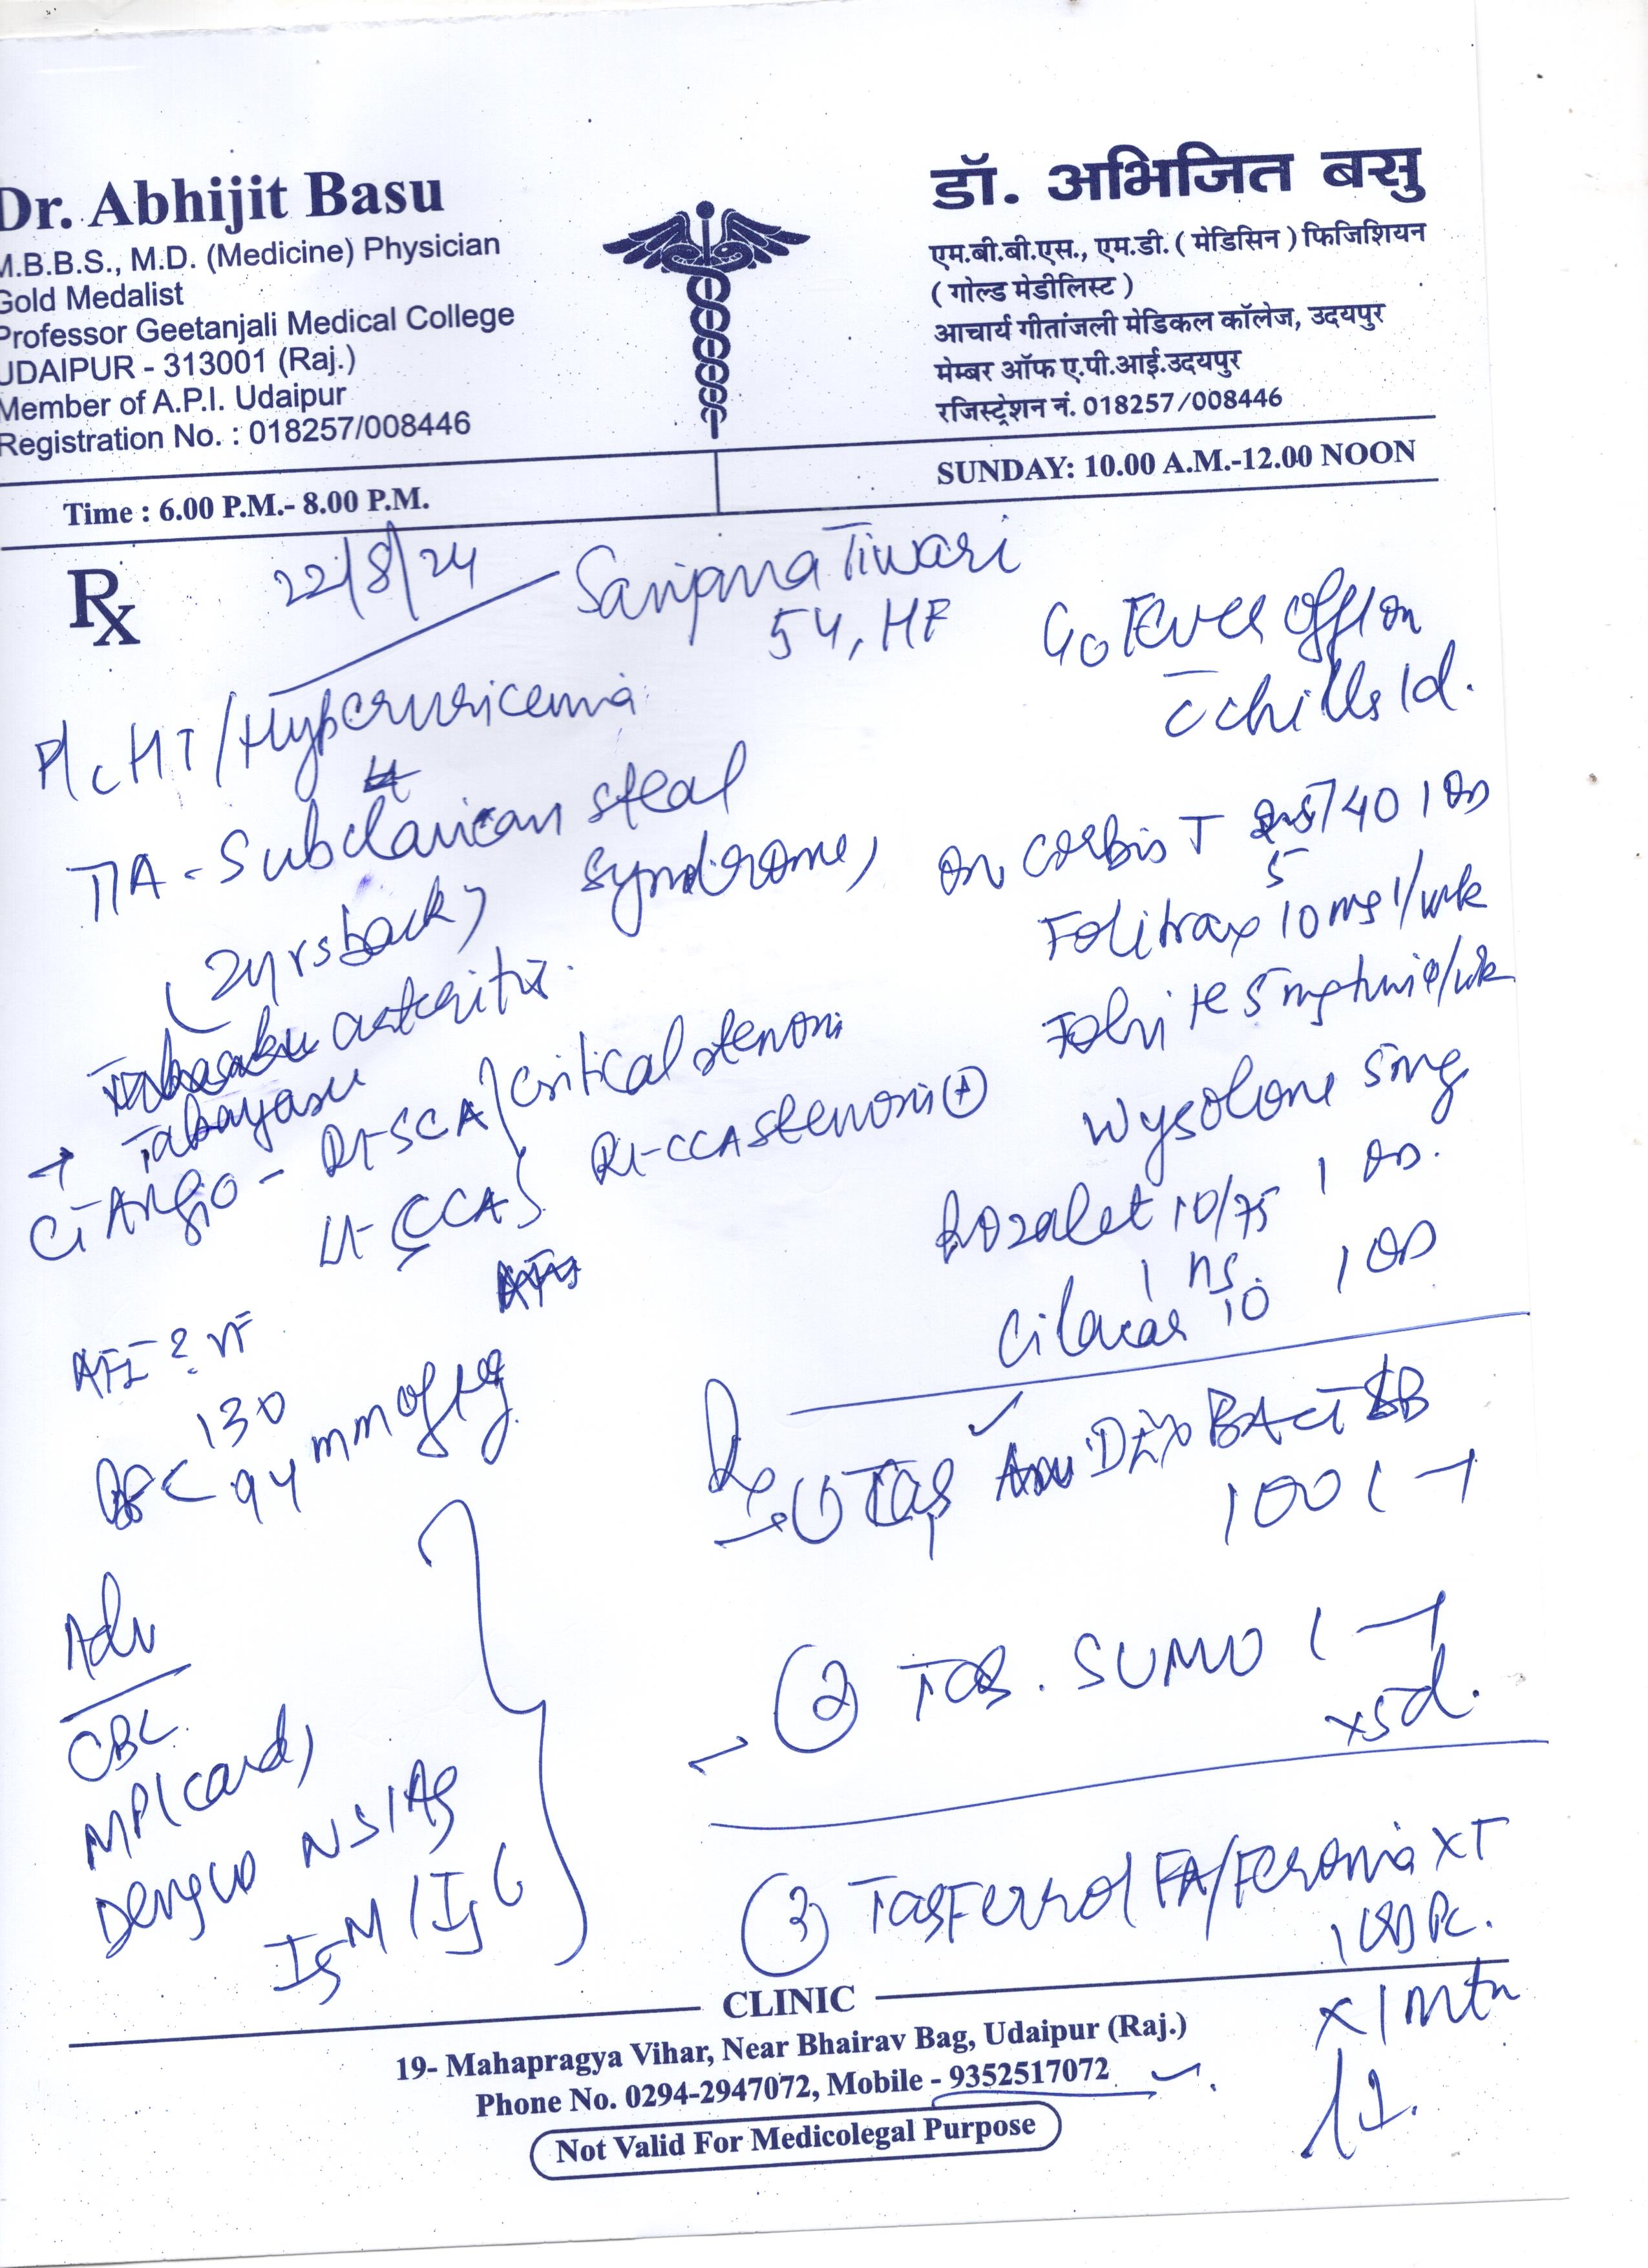 Dr. Abhijit Basu
M.B.B.S., M.D. (Medicine) Physician
Gold Medalist
Professor Geetanjali Medical College
UDAIPUR - 313001 (Raj.)
Member of A.P.I. Udaipur
Registration No. : 018257/008446
डॉ. अभिजित बसु
एम.बी.बी.एस., एम.डी. ( मेडिसिन ) फिजिशियन
( गोल्ड मेडीलिस्ट )
आचार्य गीतांजली मेडिकल कॉलेज, उदयपुर
मेम्बर ऑफ ए.पी.आई.उदयपुर
रजिस्ट्रेशन नं. 018257/008446
Time : 6.00 P.M.- 8.00 P.M.
SUNDAY: 10.00 A.M.-12.00 NOON
Rx
22/8/24
Sanjana Tiwari
54, HF
HT/Hyperuricemia
TIA - Subclavian steal
syndrome,
(2yrs back)
arteritis
→ Takayasu
CT Angio - Rt-SCA } critical stenosis
Lt- CCA } Rt-CCA stenosis (+)
130
94 mm of Hg
Adv
CBC
MP(card)
Dengue NS1Ag
IgM/IgG
c/o Fever off/on
c̄ chills 1d.
on corbis T 5/40 1 OD
Folitrax 10mg 1/wk
5mg twice/wk
Wysolone 5mg
1 OD.
Rozalet 10/75
1 ns.
Cilacar 10 1 OD
Rx
(1) Tab DOXBACT LB
100 1 - 1
(2) Tab. SUMO 1 - 1
x5d.
(3) Tab Ferrol FA/Feronia XT
1 OD Pc.
x 1 Mth
CLINIC
19- Mahapragya Vihar, Near Bhairav Bag, Udaipur (Raj.)
Phone No. 0294-2947072, Mobile - 9352517072
Not Valid For Medicolegal Purpose